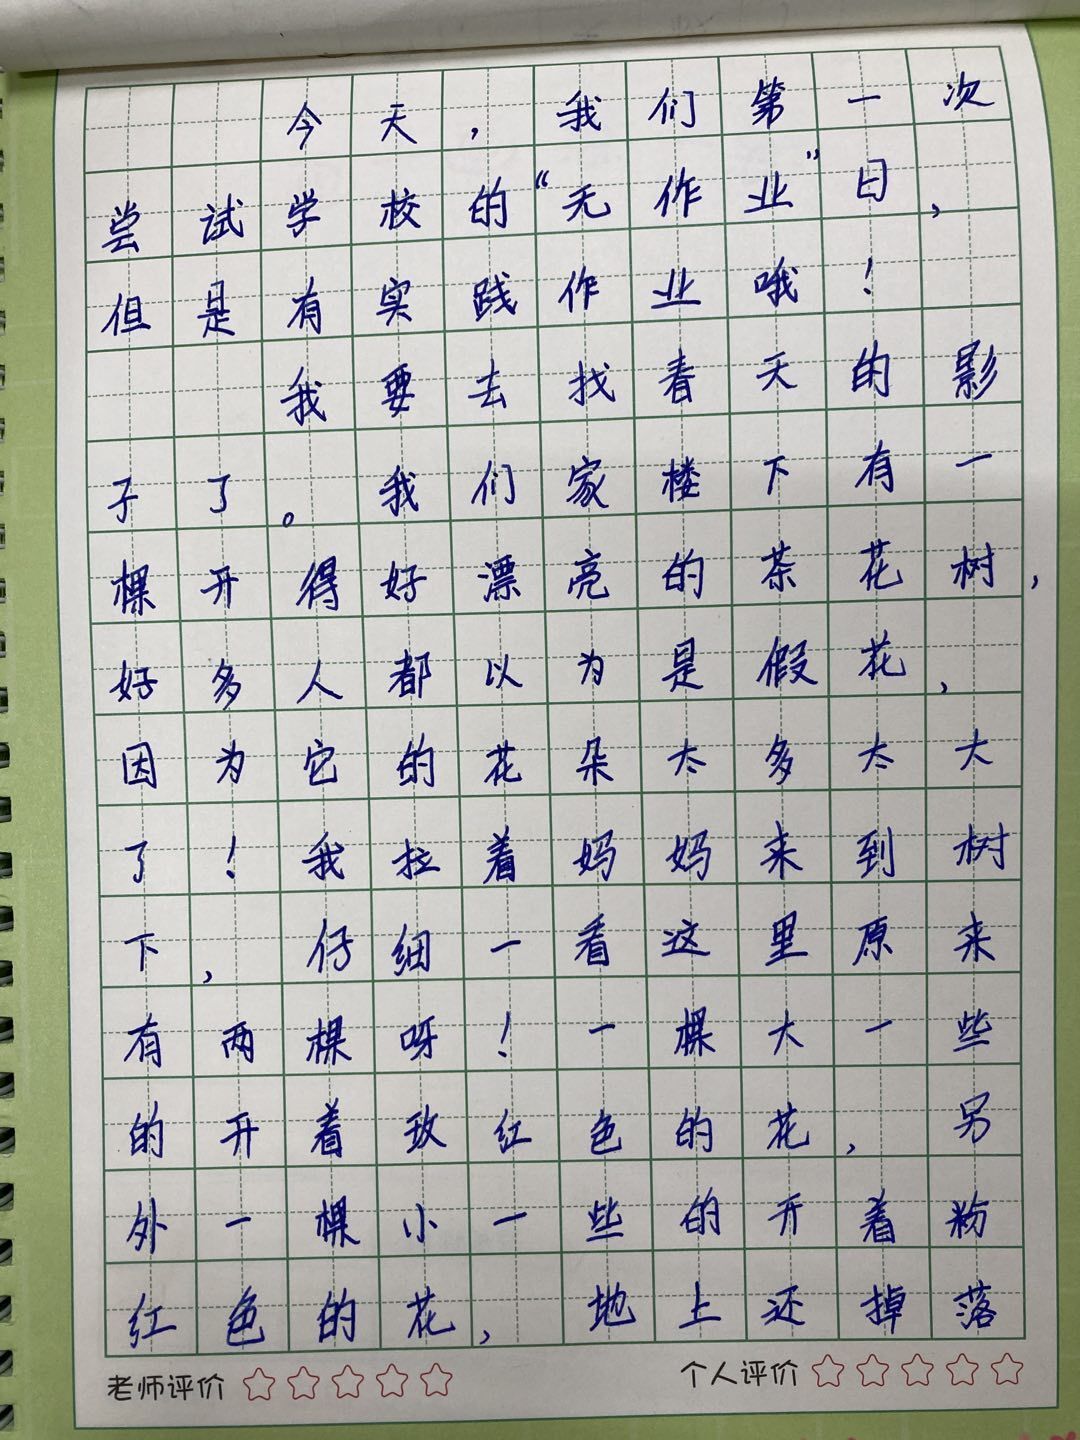 今天，我们第一次
尝试学校的“无作业”日，
但是有实践作业哦！
我要去找春天的影
子了。我们家楼下有一
棵开得好漂亮的茶花树，
好多人都以为是假花，
因为它的花朵太多太大
了！我拉着妈妈来到树
下，仔细一看这里原来
有两棵呀！一棵大一些
的开着玫红色的花，另
外一棵小一些的开着粉
红色的花，地上还掉落
老师评价 个人评价